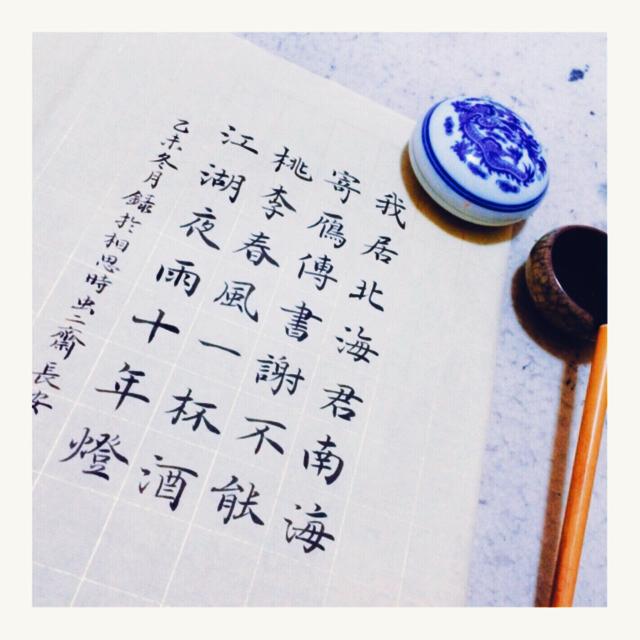 我居北海君南海
寄鴈傳書謝不能
桃李春風一杯酒
江湖夜雨十年燈
乙未冬月錄於相思時出二齋長安